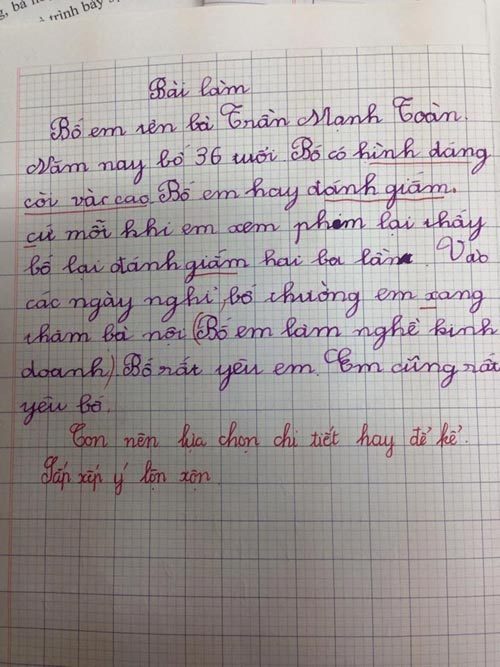 trình bày
Bài làm
Bố em tên bà Trần Mạnh Toàn.
Năm nay bố 36 tuổi. Bố có hình dáng
còi vàc cao. Bố em hay đánh giắm.
cứ mỗi khi em xem phim lại thấy
bố lại đánh giắm hai ba lần. Vào
các ngày nghỉ, bố thường em xang
thăm bà nội (Bố em làm nghề kinh
doanh). Bố rất yêu em. Em cũng rất
yêu bố.
Con nên lựa chọn chi tiết hay để kể.
Sắp xếp ý lộn xộn